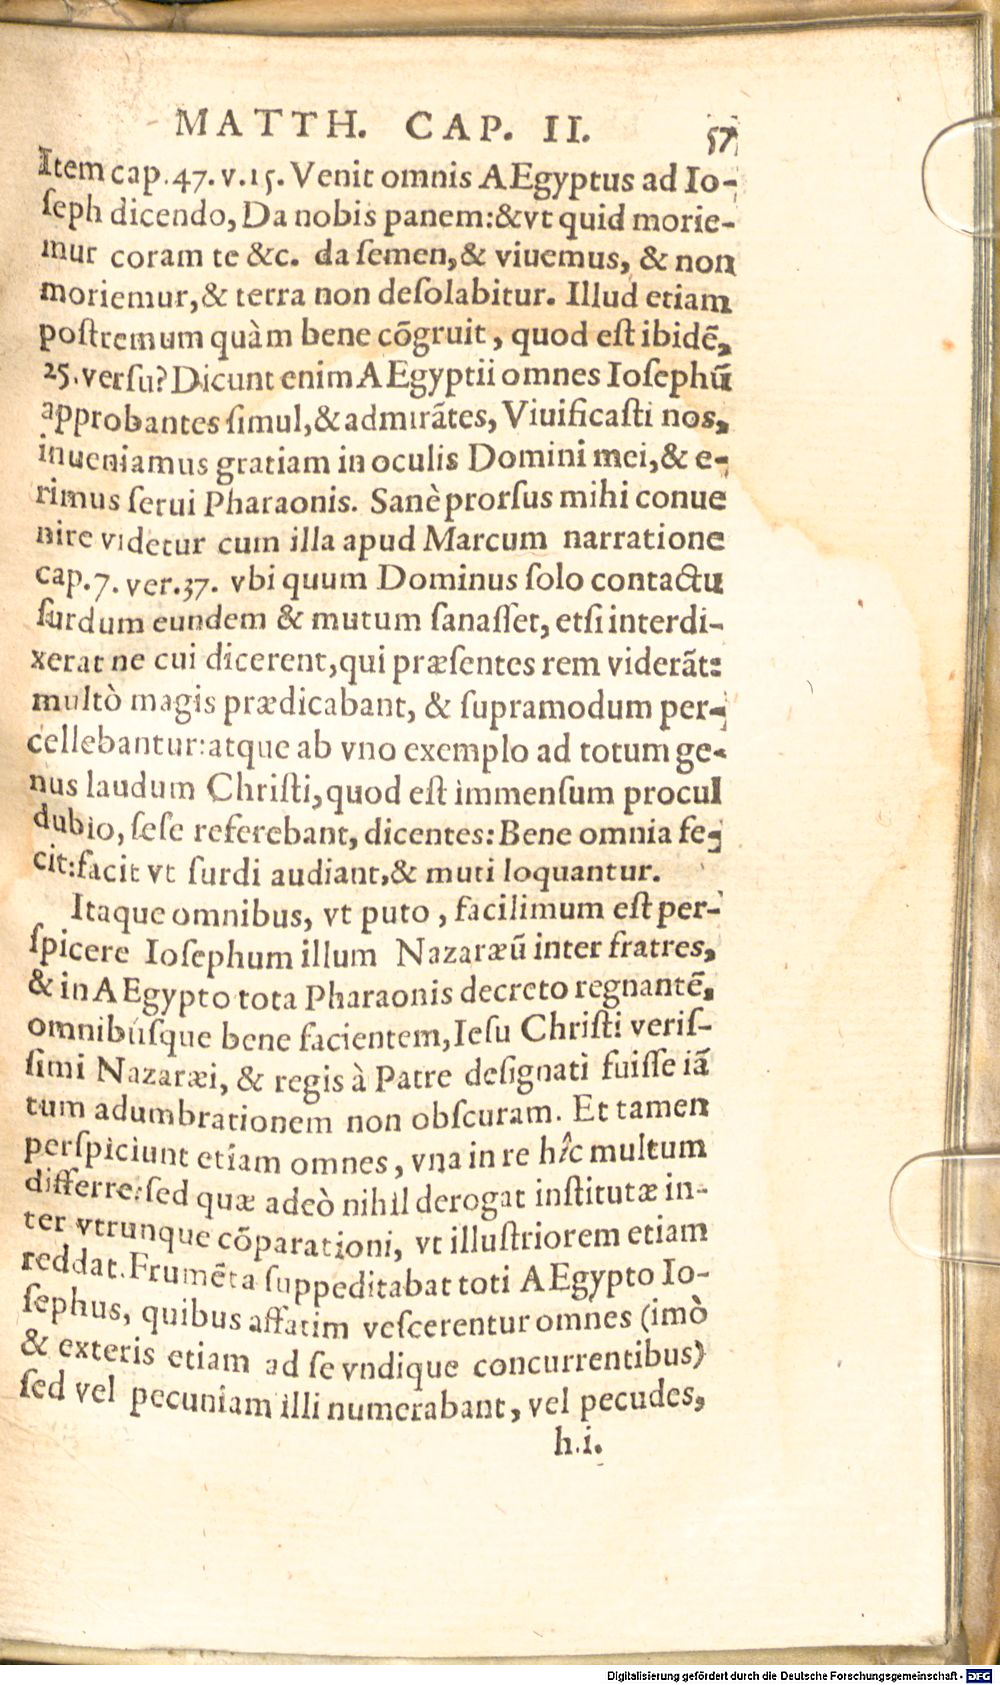 MATTH. CAP. II. 57
Item cap.47.v.15. Venit omnis AEgyptus ad Io-
ſeph dicendo, Da nobis panem:&vt quid morie-
mur coram te &c. da ſemen,& viuemus, & non
moriemur,& terra non deſolabitur. Illud etiam
poſtremum quàm bene cõgruit, quod eſt ibidẽ,
25.verſu? Dicunt enim AEgyptii omnes Ioſephũ
approbantes ſimul,& admirãtes, Viuificaſti nos,
inueniamus gratiam in oculis Domini mei,& e-
rimus ſerui Pharaonis. Sanè prorſus mihi conue
nire videtur cum illa apud Marcum narratione
cap.7. ver.37. vbi quum Dominus ſolo contactu
ſurdum eundem & mutum ſanaſſet, etſi interdi-
xerat ne cui dicerent,qui præſentes rem viderãt:
multò magis prædicabant, & ſupramodum per-
cellebantur:atque ab vno exemplo ad totum ge-
nus laudum Chriſti,quod eſt immenſum procul
dubio, ſeſe referebant, dicentes: Bene omnia fe-
cit:facit vt ſurdi audiant,& muti loquantur.
Itaque omnibus, vt puto, facilimum eſt per-
ſpicere Ioſephum illum Nazaræũ inter fratres,
& in AEgypto tota Pharaonis decreto regnantẽ,
omnibúſque bene facientem, Ieſu Chriſti veriſ-
ſimi Nazaræi, & regis à Patre deſignati fuiſſe iã
tum adumbrationem non obſcuram. Et tamen
perſpiciunt etiam omnes, vna in re hîc multum
differre:ſed quæ adeò nihil derogat inſtitutæ in-
ter vtrunque cõparationi, vt illuſtriorem etiam
reddat. Frumẽta ſuppeditabat toti AEgypto Io-
ſephus, quibus affatim veſcerentur omnes (imò
& exteris etiam ad ſe vndique concurrentibus)
ſed vel pecuniam illi numerabant, vel pecudes,
h.i.
Digitalisierung gefördert durch die Deutsche Forschungsgemeinschaft - DFG